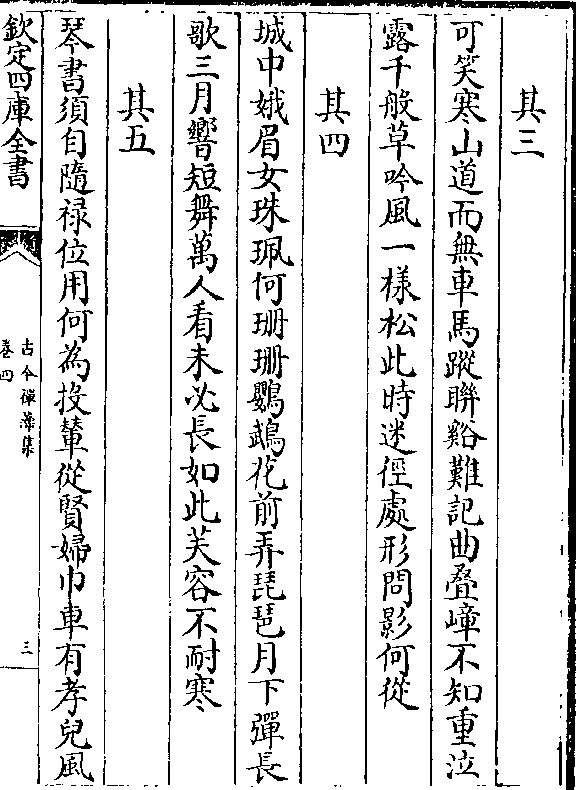 其三
可笑寒山道而無車馬蹤聮谿難記曲叠嶂不知重泣
露千般草吟風一様松此時迷徑處形問影何從
其四
城中娥眉女珠珮何珊珊鸚鵡花前弄琵琶月下彈長
歌三月響短舞萬人看未必長如此芙容不耐寒
其五
琴書須自隨禄位用何為投輦從賢婦巾車有孝兒風
欽定四庫全書
古今禪藻集
卷四
三